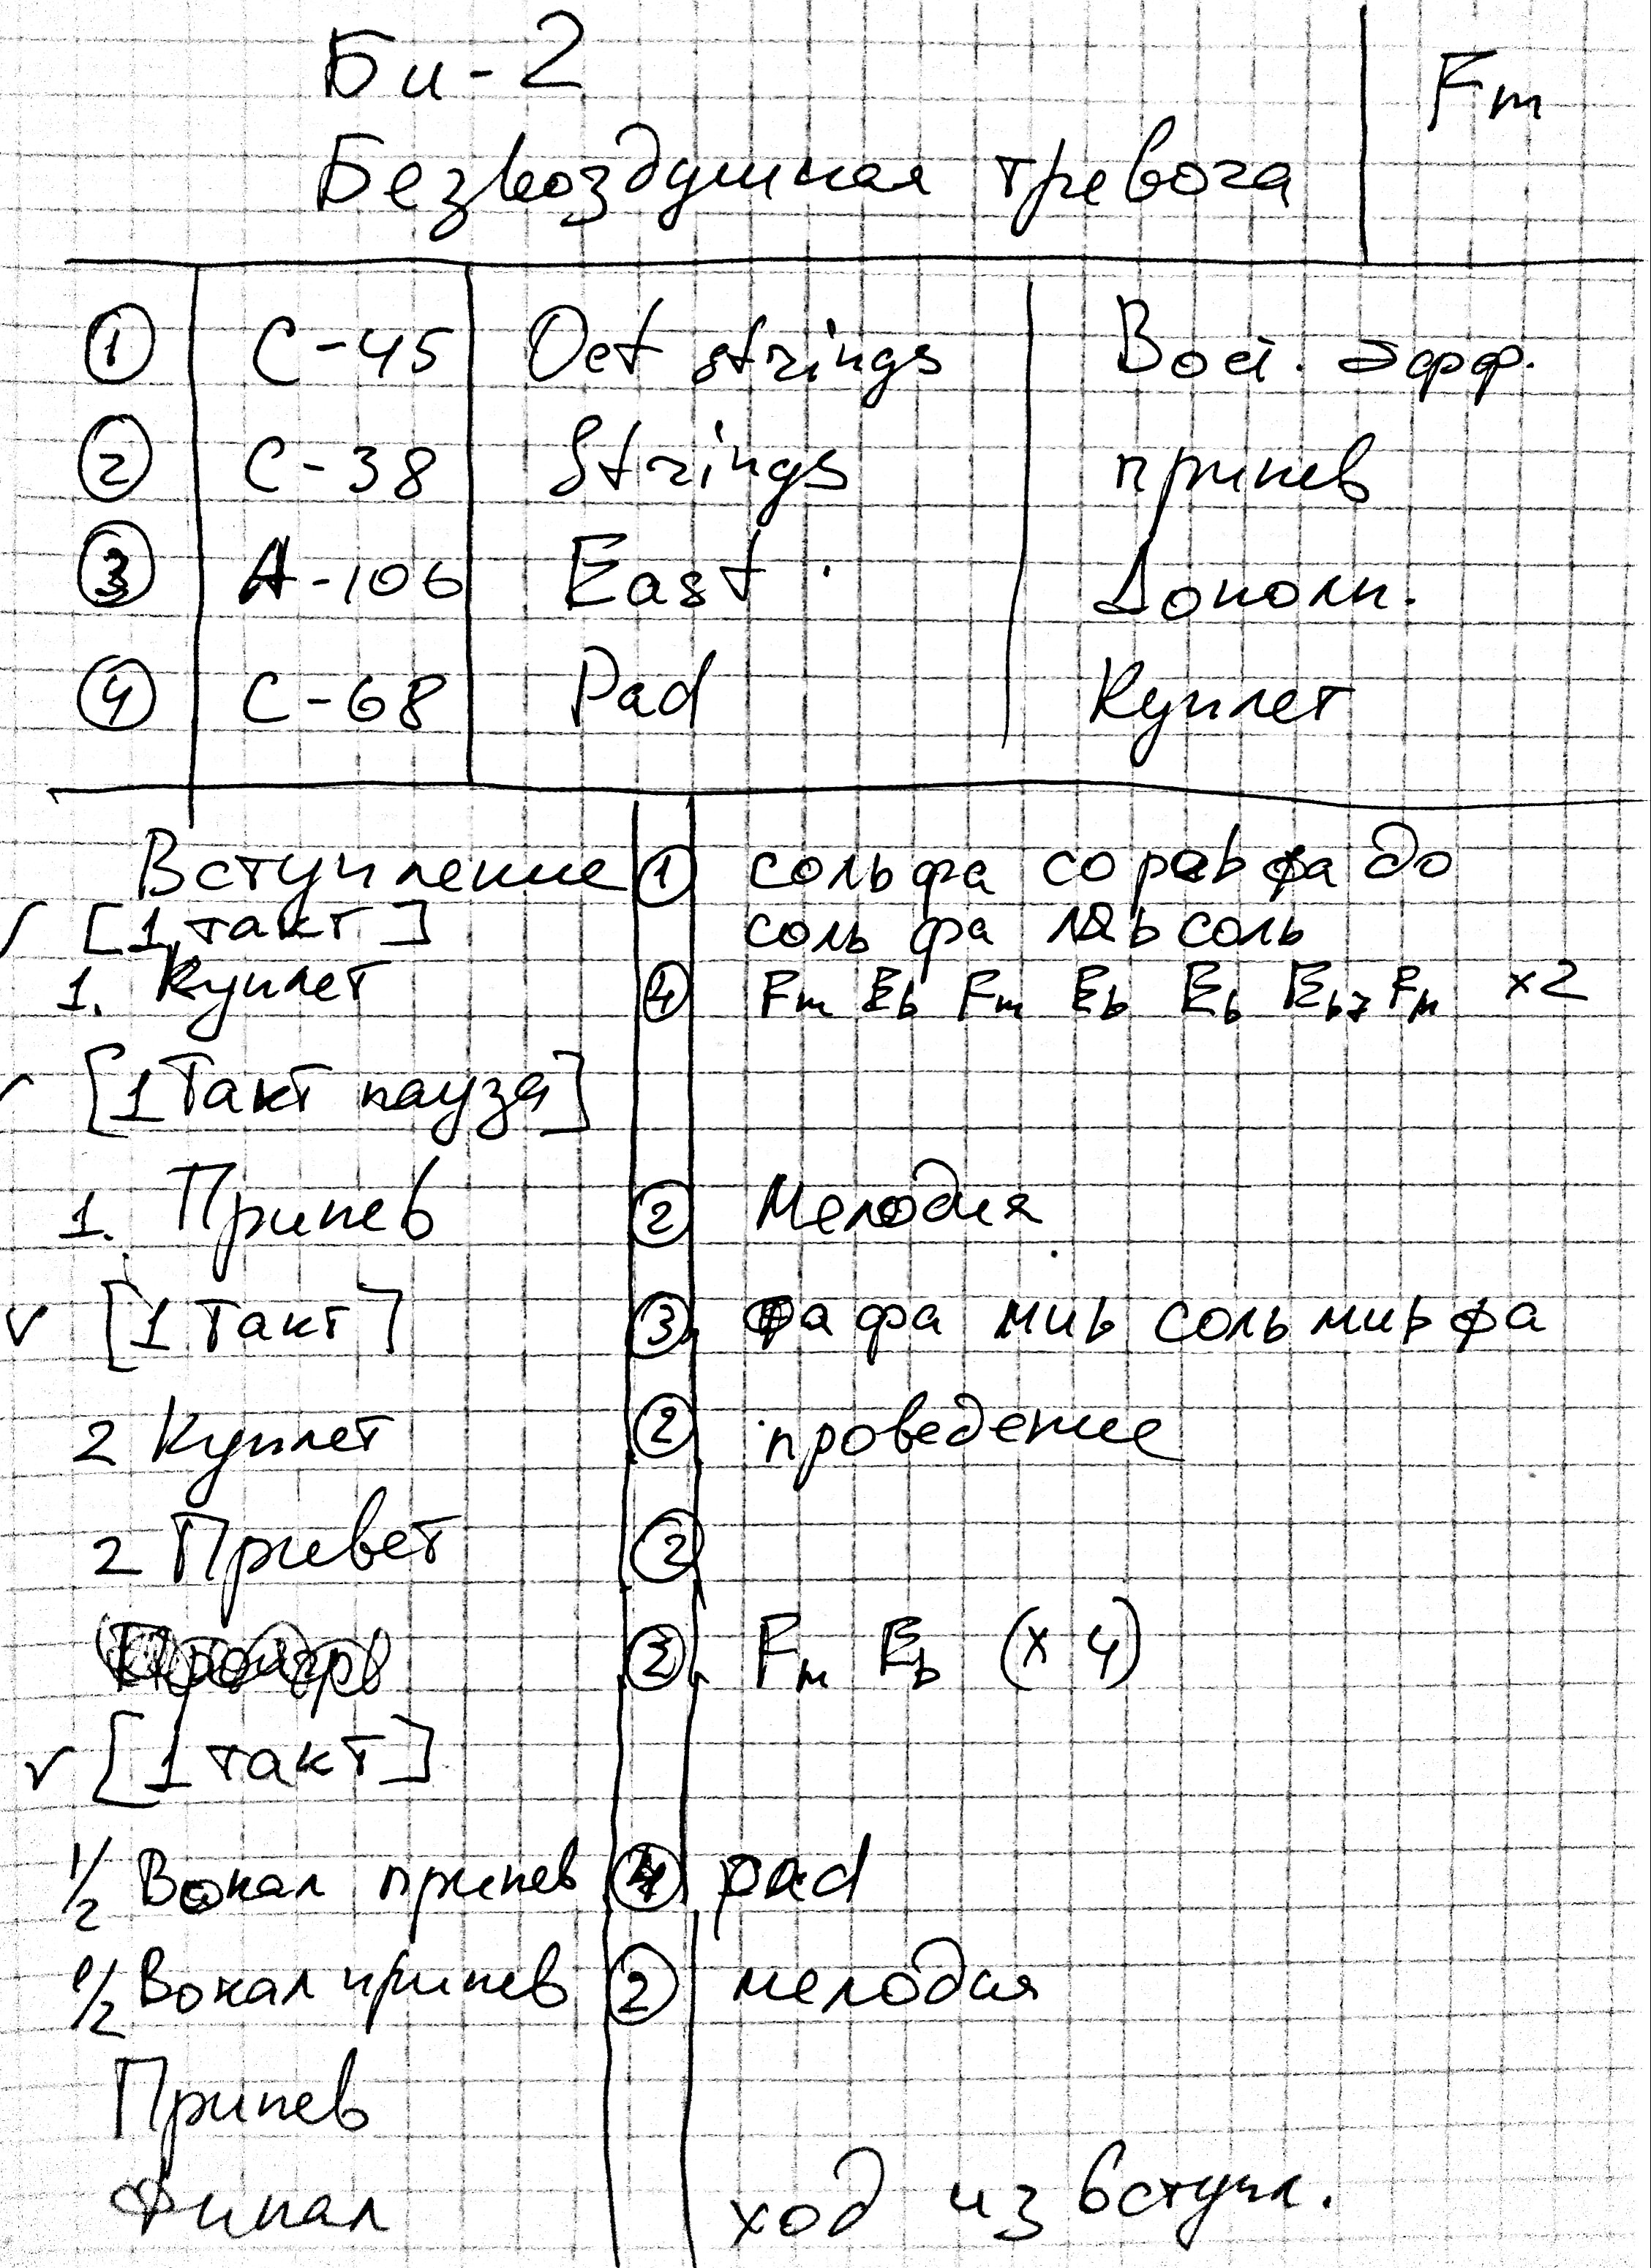 Би-2
Безвоздушная тревога
Fm
① C-45 Oct strings Вост. эфф.
② C-38 Strings припев
③ A-106 East Дополн.
④ C-68 Pad Куплет
Вступление ① соль фа со фа до
[1 такт] соль фа ляb соль
1. Куплет ④ Fm Eb Fm Eb Eb Eb7 Fm x2
[1 Такт пауза]
1. Припев ② Мелодия
v [1 Такт] ③ фа фа миb соль миb фа
2 Куплет ② проведение
2 Привет ②
② Fm Eb (x 4)
v [1 такт]
1/2 Вокал припев ④ pad
1/2 Вокал припев ② мелодия
Припев
Финал ход из вступл.